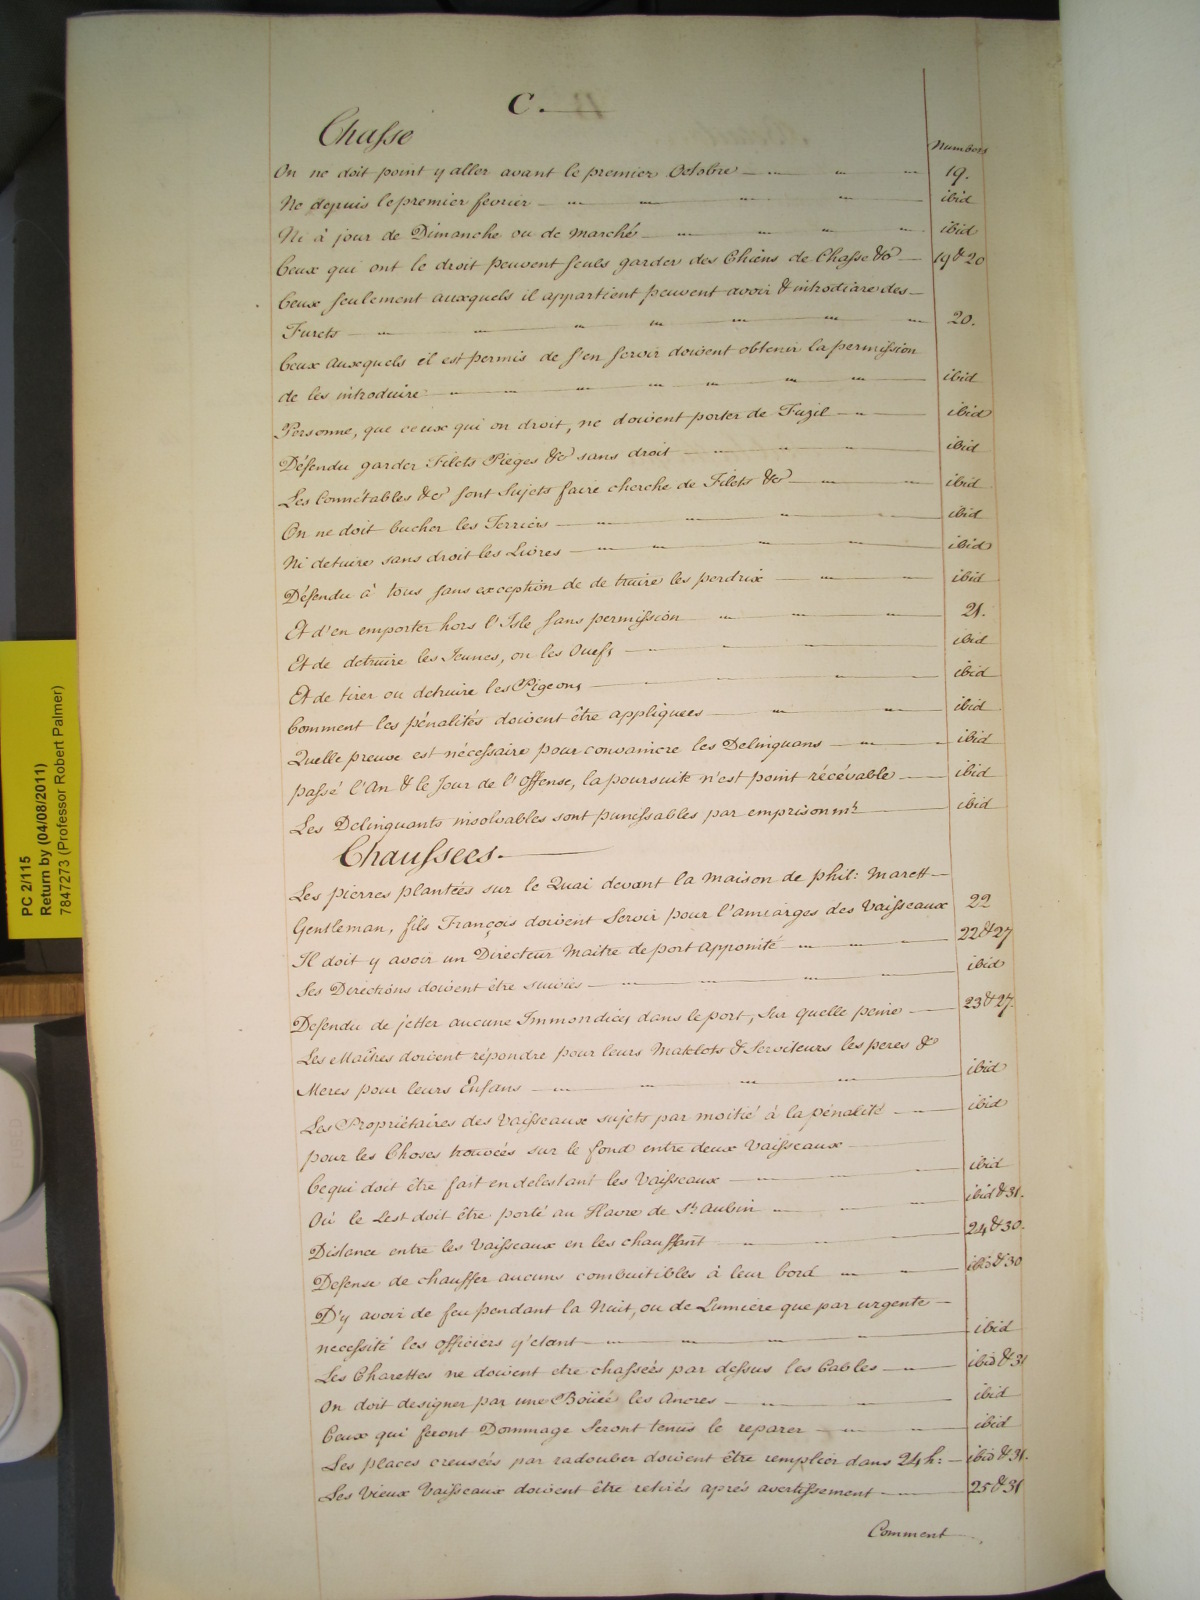 C.
Chasse
Numbers
On ne doit point y aller avant le premier Octobre 19.
Ne depuis le premier fevrier ibid
Ni à jour de Dimanche ou de Marché ibid
Ceux qui ont le droit peuvent seuls garder des Chiens de Chasse &c 19 & 20
Ceux seulement auxquels il appartient peuvent avoir & introdiare des
Furets 20.
Ceux auxquels il est permis de s'en servir doivent obtenir la permission
de les introduire ibid
Personne, que ceux qui on droit, ne doivent porter de Fuzil ibid
Défendu garder Filets Pieges &c sans droit ibid
Les Connétables &c sont Sujets faire cherche de Filets &c ibid
On ne doit bucher les Terriers ibid
Ni detuire sans droit les Livres ibid
Défendu à tous sans exception de de truire les perdrix ibid
Et d'en emporter hors l'Isle sans permission 21.
Et de detruire les Jeunes, ou les Oeufs ibid
Et de tirer ou detruire les Pigeons ibid
Comment les pénalités doivent être appliquees ibid
Quelle preuve est nécessaire pour convaincre les Delinquans ibid
passé l'An & le Jour de l'Offense, la poursuite n'est point récévable ibid
Les Delinquants insolvables sont punissables par emprisonmt ibid
Chaussees.
Les pierres plantées sur le Quai devant la maison de phil: Marett
Gentleman, fils François doivent Servir pour l'amarages des Vaisseaux 22
Il doit y avoir un Directeur Maitre de port Apponité 22 & 27
Ses Directions doivent être suivies ibid
Defendu de jetter aucune Immondices dans le port, sur quelle peine 23 & 27.
Les Maîtres doivent répondre pour leurs Matelots & Serviteurs les peres &
Meres pour leurs Enfans ibid
Les Propriétaires des Vaisseaux sujets par moitié à la pénalité ibid
pour les Choses trouvées sur le fond entre deux Vaisseaux
Ce qui doit être fait en delestant les Vaisseaux ibid
Où le Lest doit être porté au Havre de St Aubin ibid & 31.
Distance entre les Vaisseaux en les chauffant 24 & 30.
Defense de chauffer aucuns combuitibles à leur bord ibid & 30
D'y avoir de feu pendant la Nuit, ou de Lumiere que par urgente
necessité les officiers y'etant ibid
Les Charettes ne doivent etre chasseés par dessus les Cables ibid & 31
On doit designer par une Boüeé les Ancres ibid
Ceux qui feront Dommage Seront tenus le reparer ibid
Les places creuseés par radouber doivent être remplier dans 24 h: ibid & 31.
Les Vieux Vaisseaux doivent être retirés aprés avertissement 25 & 31
Comment
PC 2/115
Return by (04/08/2011)
7847273 (Professor Robert Palmer)